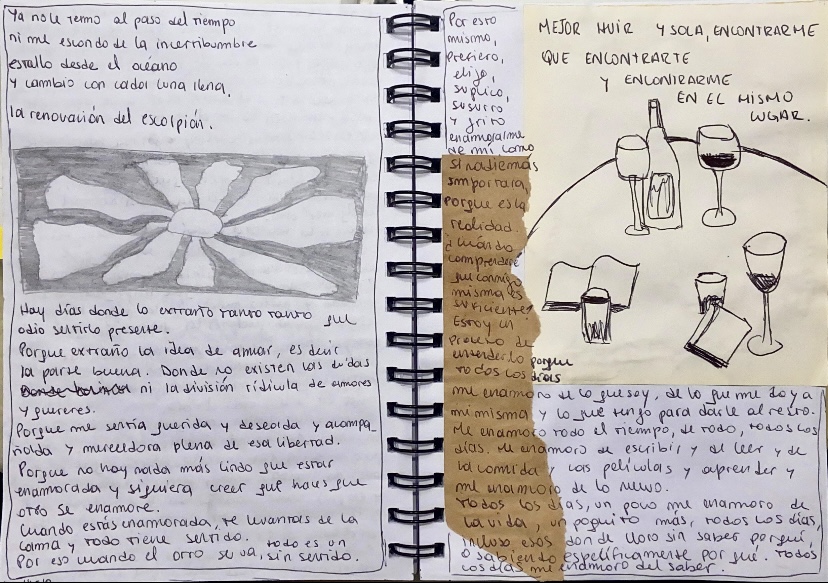 Ya no le temo al paso del tiempo
ni me escondo de la incertibumbre
estallo desde el océano
y cambio con cada luna llena.
la renovación del escorpión.
Hay días donde lo extraño tanto tanto que
odio sentirlo presente.
Porque extraño la idea de amar, es decir
la parte buena. Donde no existen las dudas
ni la división ridícula de amores
y quereres.
Porque me sentía querida y deseada y acompa-
ñada y merecedora plena de esa libertad.
Porque no hay nada más lindo que estar
enamorada y siquiera creer que haces que
otro se enamore.
Cuando estás enamorada, te levantas de la
cama y todo tiene sentido.
Por eso cuando el otro se va, todo es un sin sentido.
Por esto
mismo,
prefiero,
elijo,
suplico,
susurro
y grito
enamorarme
de mí como
si nadie más
importara,
porque es la
realidad.
¿Cuándo
comprenderé
que conmigo
misma es
suficiente?
Estoy en
proceso de
entenderlo porque
todos los días
me enamoro de lo que soy, de lo que me doy a
mi misma y lo que tengo para darle al resto.
Me enamoro todo el tiempo, de todo, todos los
días. Me enamoro de escribir y de leer y de
la comida y las películas y aprender y
me enamoro de lo nuevo.
Todos los días, un poco me enamoro de
la vida, un poquito más, todos los días,
incluso esos donde lloro sin saber porqué,
o sabiendo específicamente por qué. Todos
los días me enamoro del saber.
MEJOR HUIR Y SOLA, ENCONTRARME
QUE ENCONTRARTE
Y ENCONTRARME
EN EL MISMO
LUGAR.